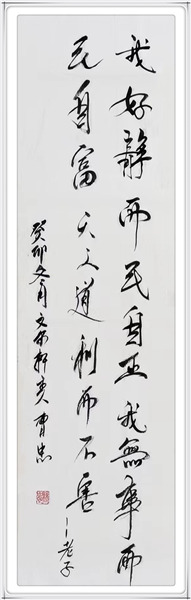 我好静而民自正我無事而
民自富天之道利而不害——老子
癸卯冬月文安轩主曹忠